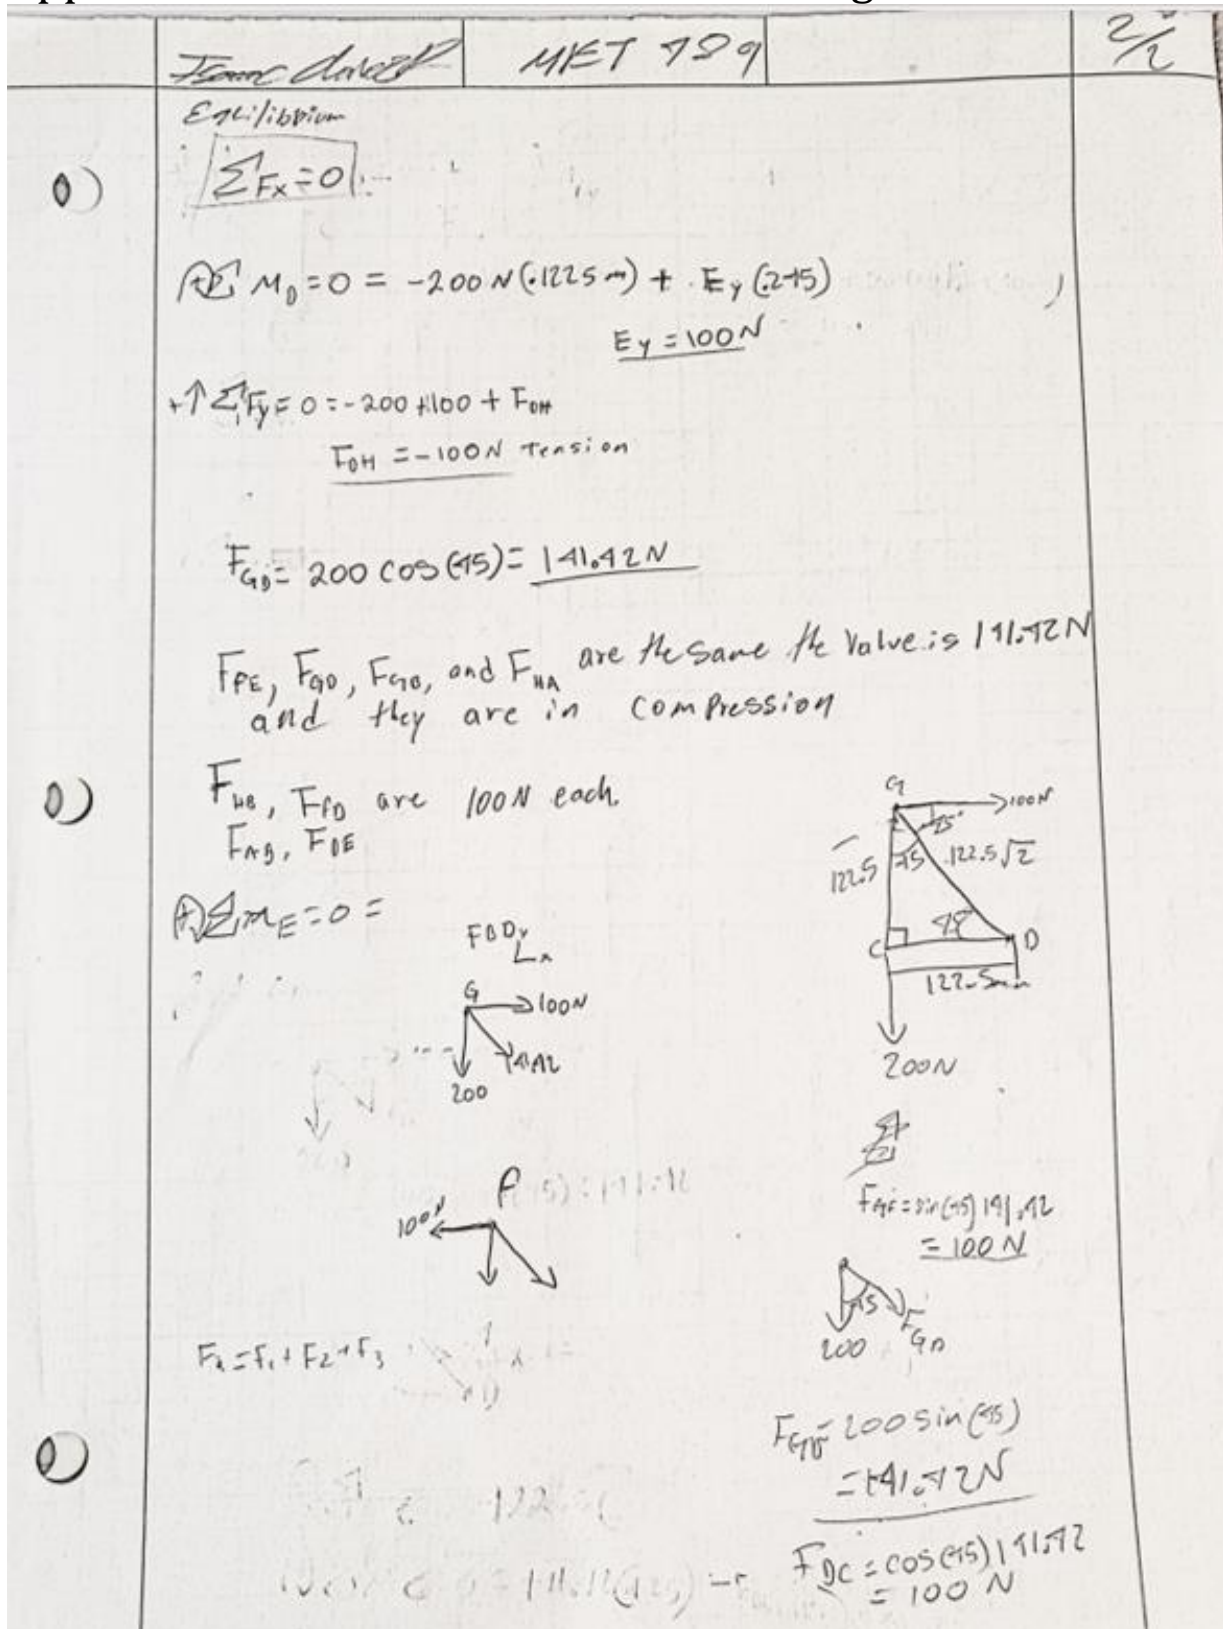 MET 489
2/2
Eqilibrium
ΣFx=0
+Σ M_D=0 = -200N(.1225m) + Ey(.245)
Ey=100N
+↑ΣFy=0=-200+100+F_DH
F_DH =-100N Tension
F_GD= 200 cos(45)= 141.42N
F_FE, F_GD, F_GB, and F_HA are the same the value is 141.42N
and they are in compression
F_HB, F_FD are 100N each.
F_AB, F_DE
+Σm_E=0=
FBD y
x
G
100N
141.42
200
G
100N
45
45
122.5
122.5√2
45
C
D
122.5mm
200N
F_GF=sin(45)141.42
=100N
F
100N
45
200
F_GD
Fx=F1+F2+F3
F_GD=200sin(45)
=141.42N
F_DC=cos(45)141.42
=100N